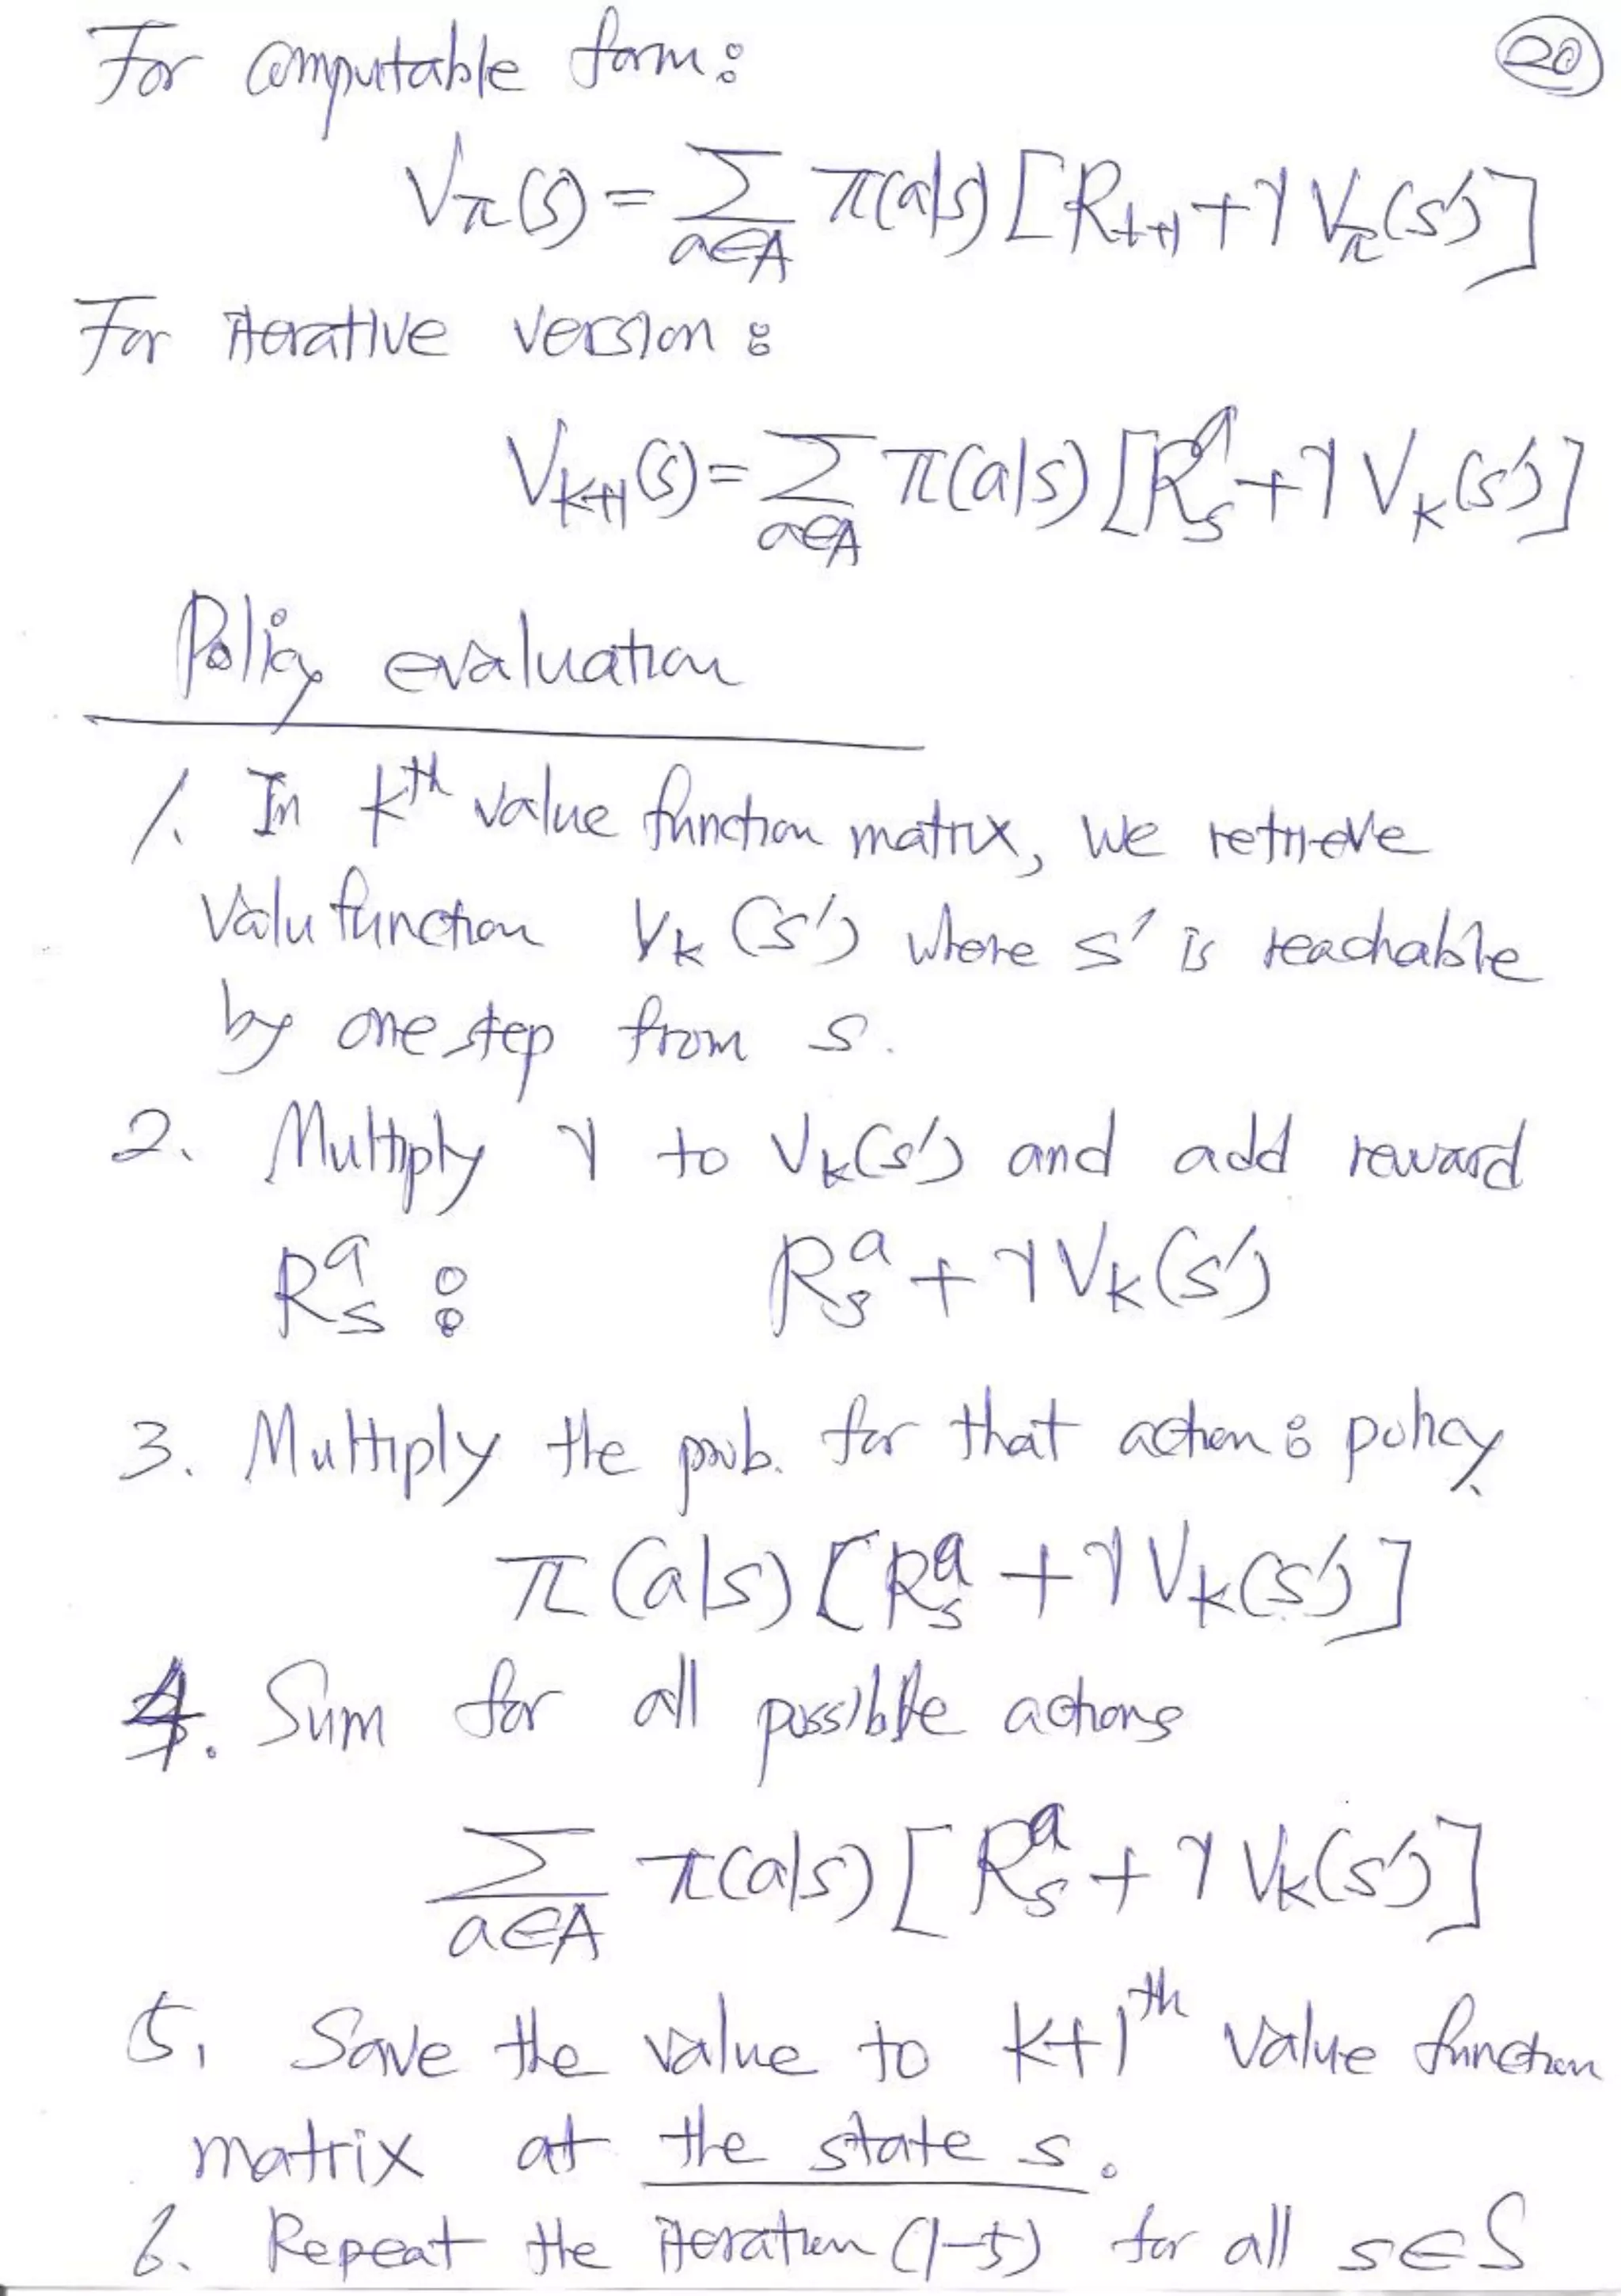 For computable form:
20
V_π(s) = Σ_{a∈A} π(a|s) [R_{t+1} + γ V_π(s')]
For iterative version :
V_{k+1}(s) = Σ_{a∈A} π(a|s) [R_s^a + γ V_k(s')]
Policy evaluation
1. In k^th value function matrix, we retrieve
valu function V_k (s') where s' is reachable
by one step from s.
2. Multiply γ to V_k(s') and add reward
R_s^a : R_s^a + γ V_k(s')
3. Multiply the prob. for that action : policy
π(a|s) [R_s^a + γ V_k(s')]
4. Sum for all possible actions
Σ_{a∈A} π(a|s) [R_s^a + γ V_k(s')]
5. Save the value to k+1^th value function
matrix at the state s.
6. Repeat the iteration (1-5) for all s∈S